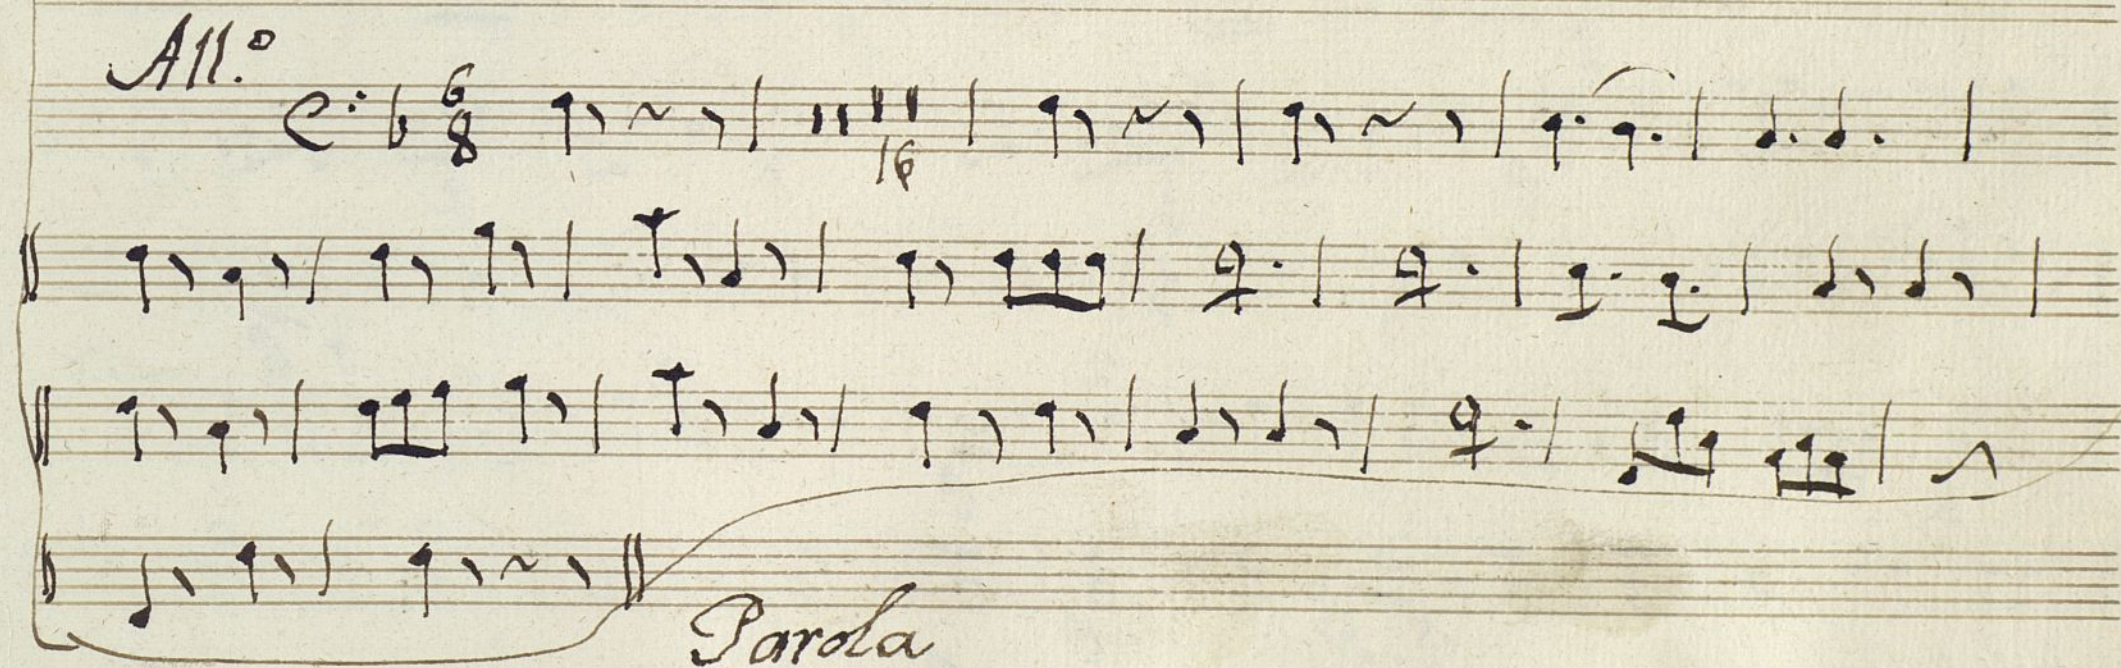 All.º
6
8
16
Parola